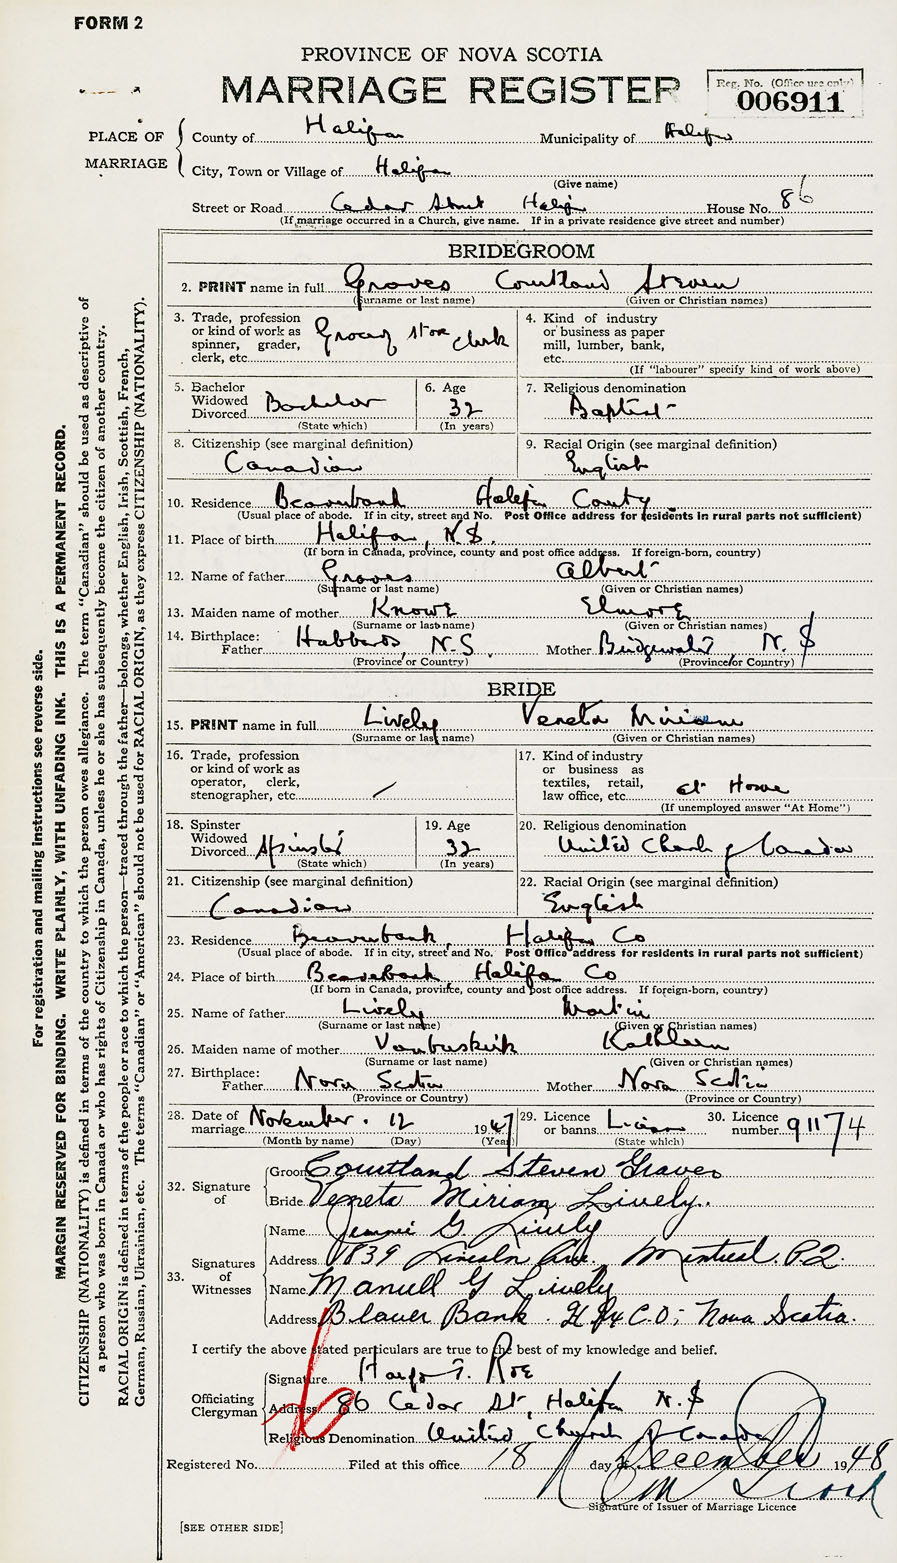 FORM 2
PROVINCE OF NOVA SCOTIA
MARRIAGE REGISTER
Reg. No. (Office use only)
006911
PLACE OF MARRIAGE
County of Halifax Municipality of Halifax
City, Town or Village of Halifax
(Give name)
Street or Road Cedar Street Halifax House No. 86
(If marriage occurred in a Church, give name. If in a private residence give street and number)
BRIDEGROOM
2. PRINT name in full Groves Courtland Steven
(Surname or last name) (Given or Christian names)
3. Trade, profession or kind of work as spinner, grader, clerk, etc. Grocery store clerk
4. Kind of industry or business as paper mill, lumber, bank, etc.
(If "labourer" specify kind of work above)
5. Bachelor Widowed Divorced Bachelor
(State which)
6. Age 32
(In years)
7. Religious denomination
Baptist
8. Citizenship (see marginal definition)
Canadian
9. Racial Origin (see marginal definition)
English
10. Residence Beaverbank Halifax County
(Usual place of abode. If in city, street and No. Post Office address for residents in rural parts not sufficient)
11. Place of birth Halifax, N.S.
(If born in Canada, province, county and post office address. If foreign-born, country)
12. Name of father Groves Albert
(Surname or last name) (Given or Christian names)
13. Maiden name of mother Knowe Elmore
(Surname or last name) (Given or Christian names)
14. Birthplace: Father Hubbards, N.S. Mother Bridgewater, N.S
(Province or Country) (Province or Country)
BRIDE
15. PRINT name in full Lively Veneta Miriam
(Surname or last name) (Given or Christian names)
16. Trade, profession or kind of work as operator, clerk, stenographer, etc. /
17. Kind of industry or business as textiles, retail, law office, etc. at Home
(If unemployed answer "At Home")
18. Spinster Widowed Divorced Spinster
(State which)
19. Age 32
(In years)
20. Religious denomination
United Church of Canada
21. Citizenship (see marginal definition)
Canadian
22. Racial Origin (see marginal definition)
English
23. Residence Beaverbank, Halifax Co
(Usual place of abode. If in city, street and No. Post Office address for residents in rural parts not sufficient)
24. Place of birth Beaverbank, Halifax Co
(If born in Canada, province, county and post office address. If foreign-born, country)
25. Name of father Lively Martin
(Surname or last name) (Given or Christian names)
26. Maiden name of mother Vanbuskirk Kathleen
(Surname or last name) (Given or Christian names)
27. Birthplace: Father Nova Scotia Mother Nova Scotia
(Province or Country) (Province or Country)
28. Date of marriage November. 12 1947
(Month by name) (Day) (Year)
29. Licence or banns License
(State which)
30. Licence number 91174
32. Signature of
Groom Courtland Steven Graves
Bride Veneta Miriam Lively.
33. Signatures of Witnesses
Name Jennie G Lively
Address 1839 Lincoln Ave, Montreal. P.Q.
Name Manuell G Lively
Address Beaver Bank Hfx CO; Nova Scotia.
I certify the above stated particulars are true to the best of my knowledge and belief.
Officiating Clergyman
Signature T. Roe
Address 86 Cedar St, Halifax N.S
Religious Denomination United Church of Canada
Registered No. Filed at this office 18 day of December 1948
Signature of Issuer of Marriage Licence
[SEE OTHER SIDE]
For registration and mailing instructions see reverse side.
MARGIN RESERVED FOR BINDING. WRITE PLAINLY, WITH UNFADING INK. THIS IS A PERMANENT RECORD.
CITIZENSHIP (NATIONALITY) is defined in terms of the country to which the person owes allegiance. The term "Canadian" should be used as descriptive of
a person who was born in Canada or who has rights of Citizenship in Canada, unless he or she has subsequently become the citizen of another country.
RACIAL ORIGIN is defined in terms of the people or race to which the person—traced through the father—belongs, whether English, Irish, Scottish, French,
German, Russian, Ukrainian, etc. The terms "Canadian" or "American" should not be used for RACIAL ORIGIN, as they express CITIZENSHIP (NATIONALITY).